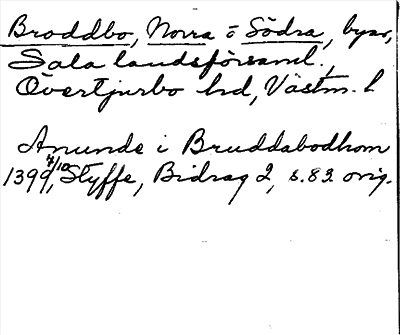 Broddbo, Norra o Södra, byar,
Sala landsförsaml.,
Övertjurbo hd, Västm. l
Anunde i Bruddabodhom
1399 7/10, Styffe, Bidrag 2, s. 83. orig.